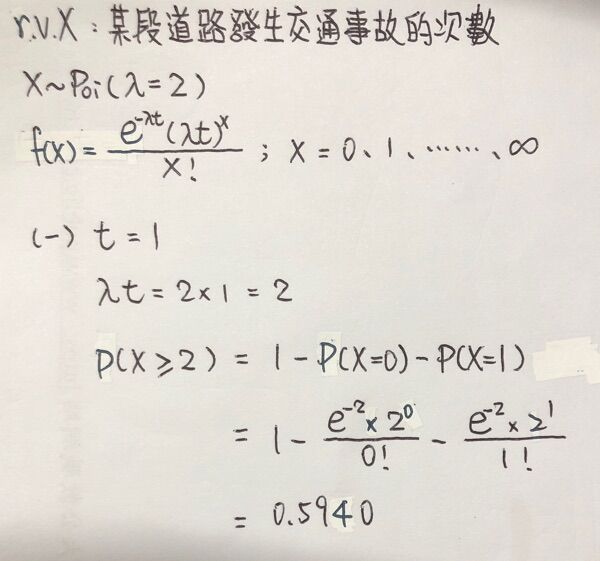 r.v.X：某段道路發生交通事故的次數
X~Poi(λ=2)
f(x) = e^{-λt}(λt)^x / x! ; X = 0、1、……、∞
(一) t = 1
λt = 2×1 = 2
P(X≥2) = 1 - P(X=0) - P(X=1)
= 1 - e^{-2}×2^0 / 0! - e^{-2}×2^1 / 1!
= 0.5940